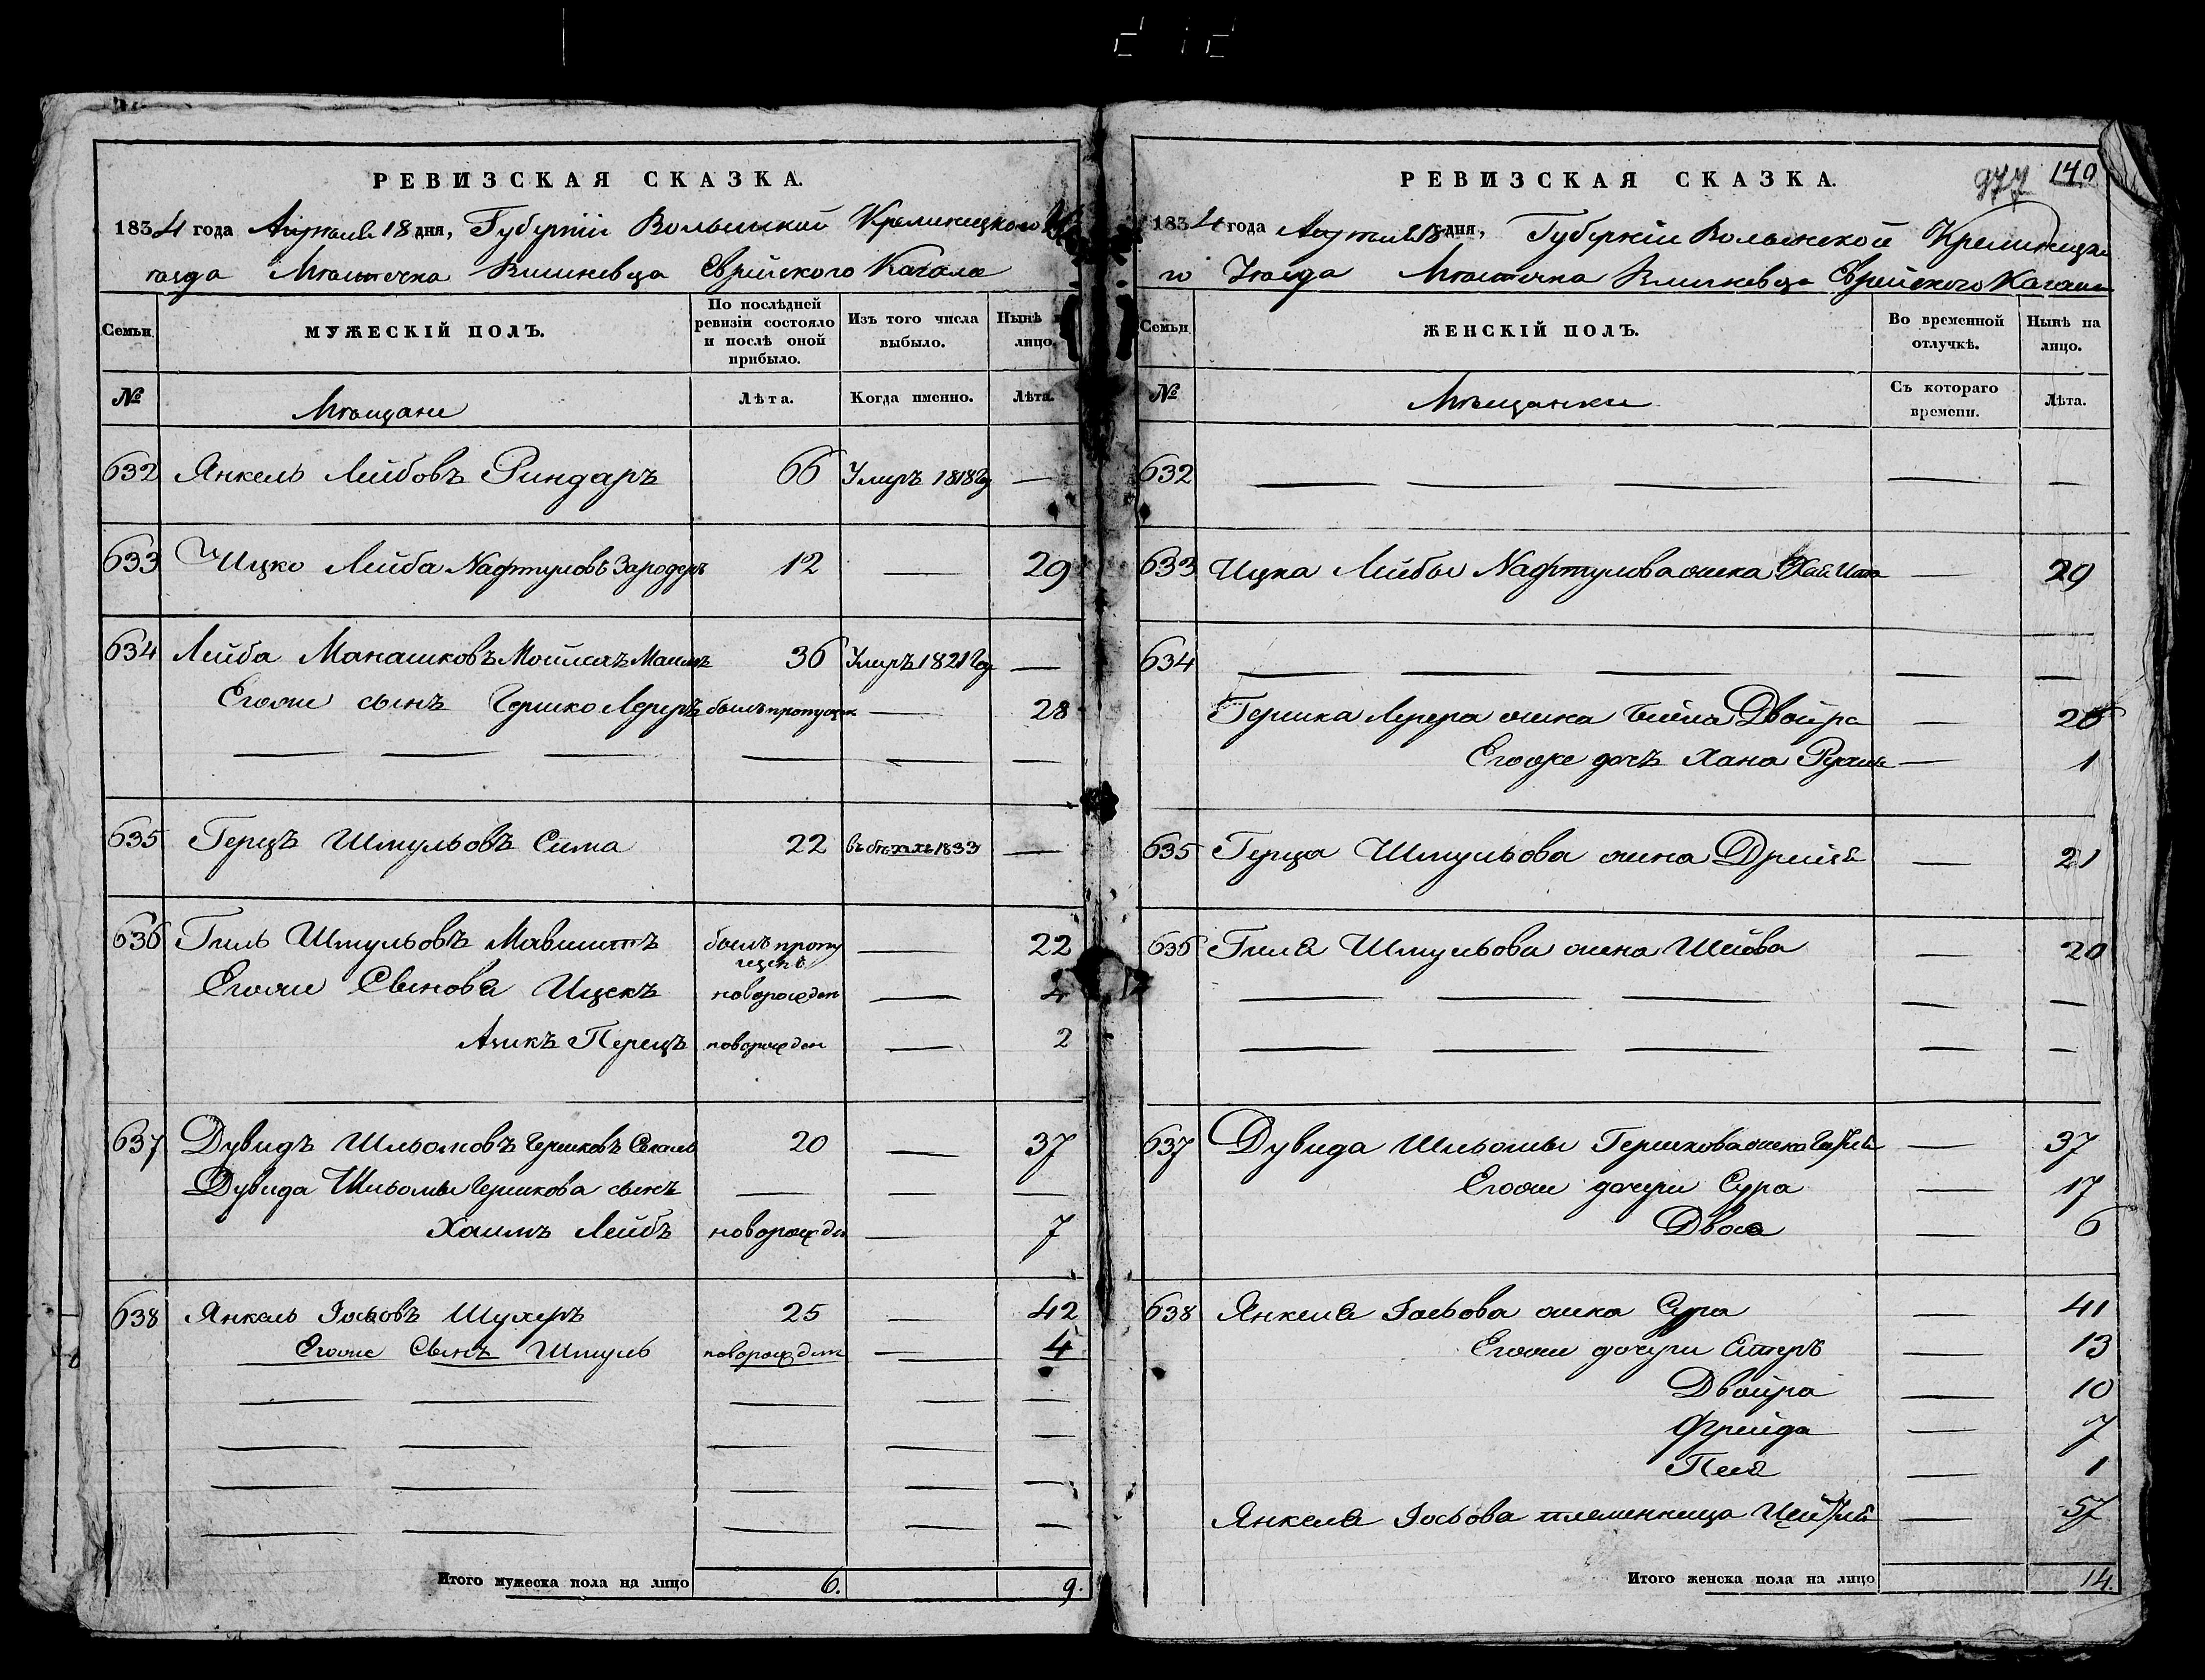 РЕВИЗСКАЯ СКАЗКА.
1834 года Апреля 18 дня, Губерніи Волынской Кременецкого
уезда Мѣстечка Вишневца Еврейского Кагала
Семьи
МУЖЕСКІЙ ПОЛЪ.
По послѣдней ревизіи состояло и послѣ оной прибыло.
Изъ того числа выбыло.
Нынѣ лицо.
№
Мѣщане
Лѣта.
Когда именно.
Лѣта.
632 Янкель Лейбовъ Риндаръ 66 Умеръ 1818 —
633 Ицко Лейба Нафтуловъ Зародеръ 12 — 29
634 Лейба Манашковъ 36 Умеръ 1821 —
Егоже сынъ Гершко Ледеръ былъ пропущен — 28
635 Герцъ Шмульовъ Сима 22 въ бѣгахъ 1833 —
636 Гиль Шмульовъ былъ пропущенъ — 22
Егоже Сыновя Ицекъ новорожден — 4
Аикъ Перецъ новорожден — 2
637 Дувидъ Шльомовъ Гершковъ Секаль 20 — 37
Дувида Шльомы Гершкова сынъ — — —
Хаимъ Лейбъ новорожден — 7
638 Янкель Іосьовъ Шухеръ 25 — 42
Егоже Сынъ Шмуль новорожден — 4
Итого мужеска пола на лицо 6. 9.
РЕВИЗСКАЯ СКАЗКА.
977 140
1834 года Апреля 18 дня, Губерніи Волынской Кременецко
го Уезда Мѣстечка Вишневца Еврейского Кагала
Семьи
ЖЕНСКІЙ ПОЛЪ.
Во временной отлучкѣ.
Нынѣ на лицо.
№
Мѣщанки
Съ котораго времени.
Лѣта.
632 — — — — —
633 Ицка Лейбы Нафтулова жена — 29
634 — — — —
Гершка Лерера жена Бейла Двойра — 26
Егоже дочъ Хана Рухля — 1
635 Герца Шмульова жена Дрейзя — 21
636 Гиля Шмульова жена Шейва — 20
— — — — —
— — — — —
637 Дувида Шльомы Гершкова жена — 37
Егоже дочери Сура — 17
Двося — 6
638 Янкеля Іосьова жена Сура — 41
Егоже дочери Естеръ — 13
Двойра — 10
Фрейда — 7
Песя — 1
Янкеля Іосьова племенница — 57
Итого женска пола на лицо 14.